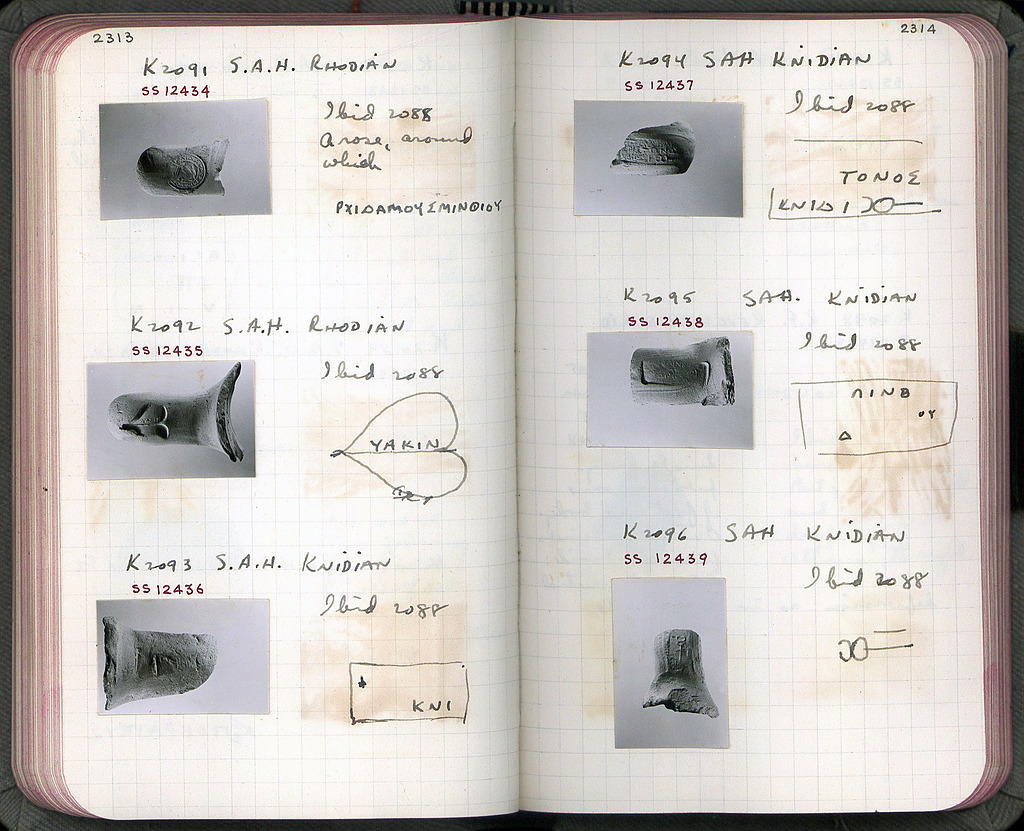 2313
K2091 S.A.H. RHODIAN
SS 12434
Ibid 2088
A rose, around
which
ΡΧΙΔΑΜΟΥΣΜΙΝΘΙΟΥ
K2092 S.A.H. RHODIAN
SS 12435
Ibid 2088
ΥΑΚΙΝ
K2093 S.A.H. KNIDIAN
SS 12436
Ibid 2088
ΚΝΙ
2314
K2094 SAH KNIDIAN
SS 12437
Ibid 2088
ΤΟΝΟΣ
ΚΝΙΔΙ
K2095 SAH. KNIDIAN
SS 12438
Ibid 2088
ΠΙΝΘ
ΟΥ
Δ
K2096 SAH KNIDIAN
SS 12439
Ibid 2088